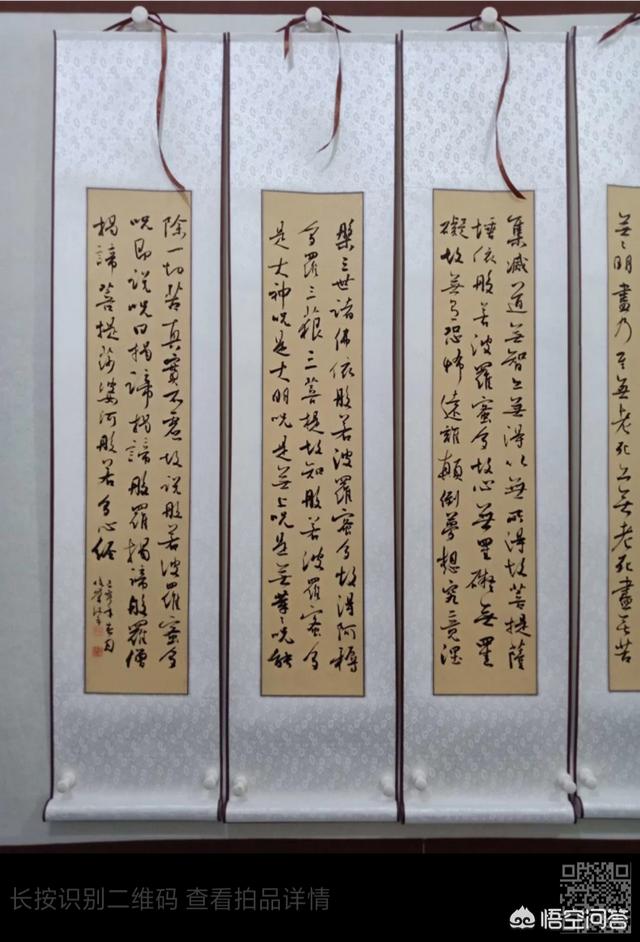 無明盡乃至無老死亦無老死盡無苦
集滅道無智亦無得以無所得故菩提薩
埵依般若波羅蜜多故心無罣礙無罣
礙故無有恐怖遠離顛倒夢想究竟涅
槃三世諸佛依般若波羅蜜多故得阿耨
多羅三藐三菩提故知般若波羅蜜多
是大神呪是大明呪是無上呪是無等等呪能
除一切苦真實不虛故說般若波羅蜜多
呪即說呪曰揭諦揭諦般羅揭諦般羅僧
揭諦菩提莎婆訶般若多心經
长按识别二维码 查看拍品详情
悟空问答